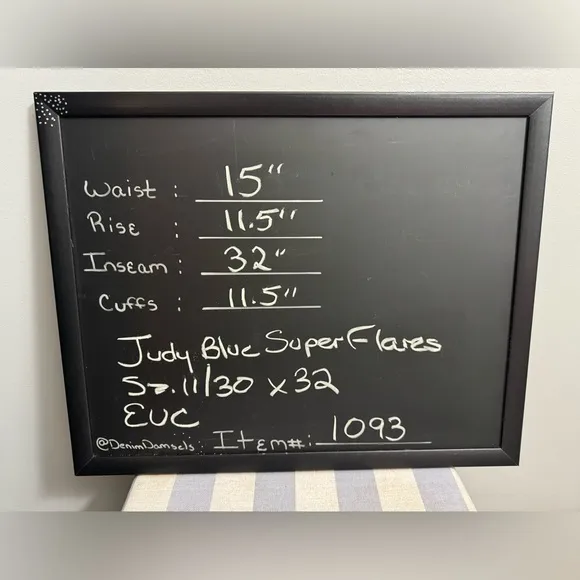 Waist : 15"
Rise : 11.5"
Inseam : 32"
Cuffs : 11.5"
Judy Blue Super Flares
Sz. 11/30 x 32
EUC
@DenimDamsels: Item#: 1093